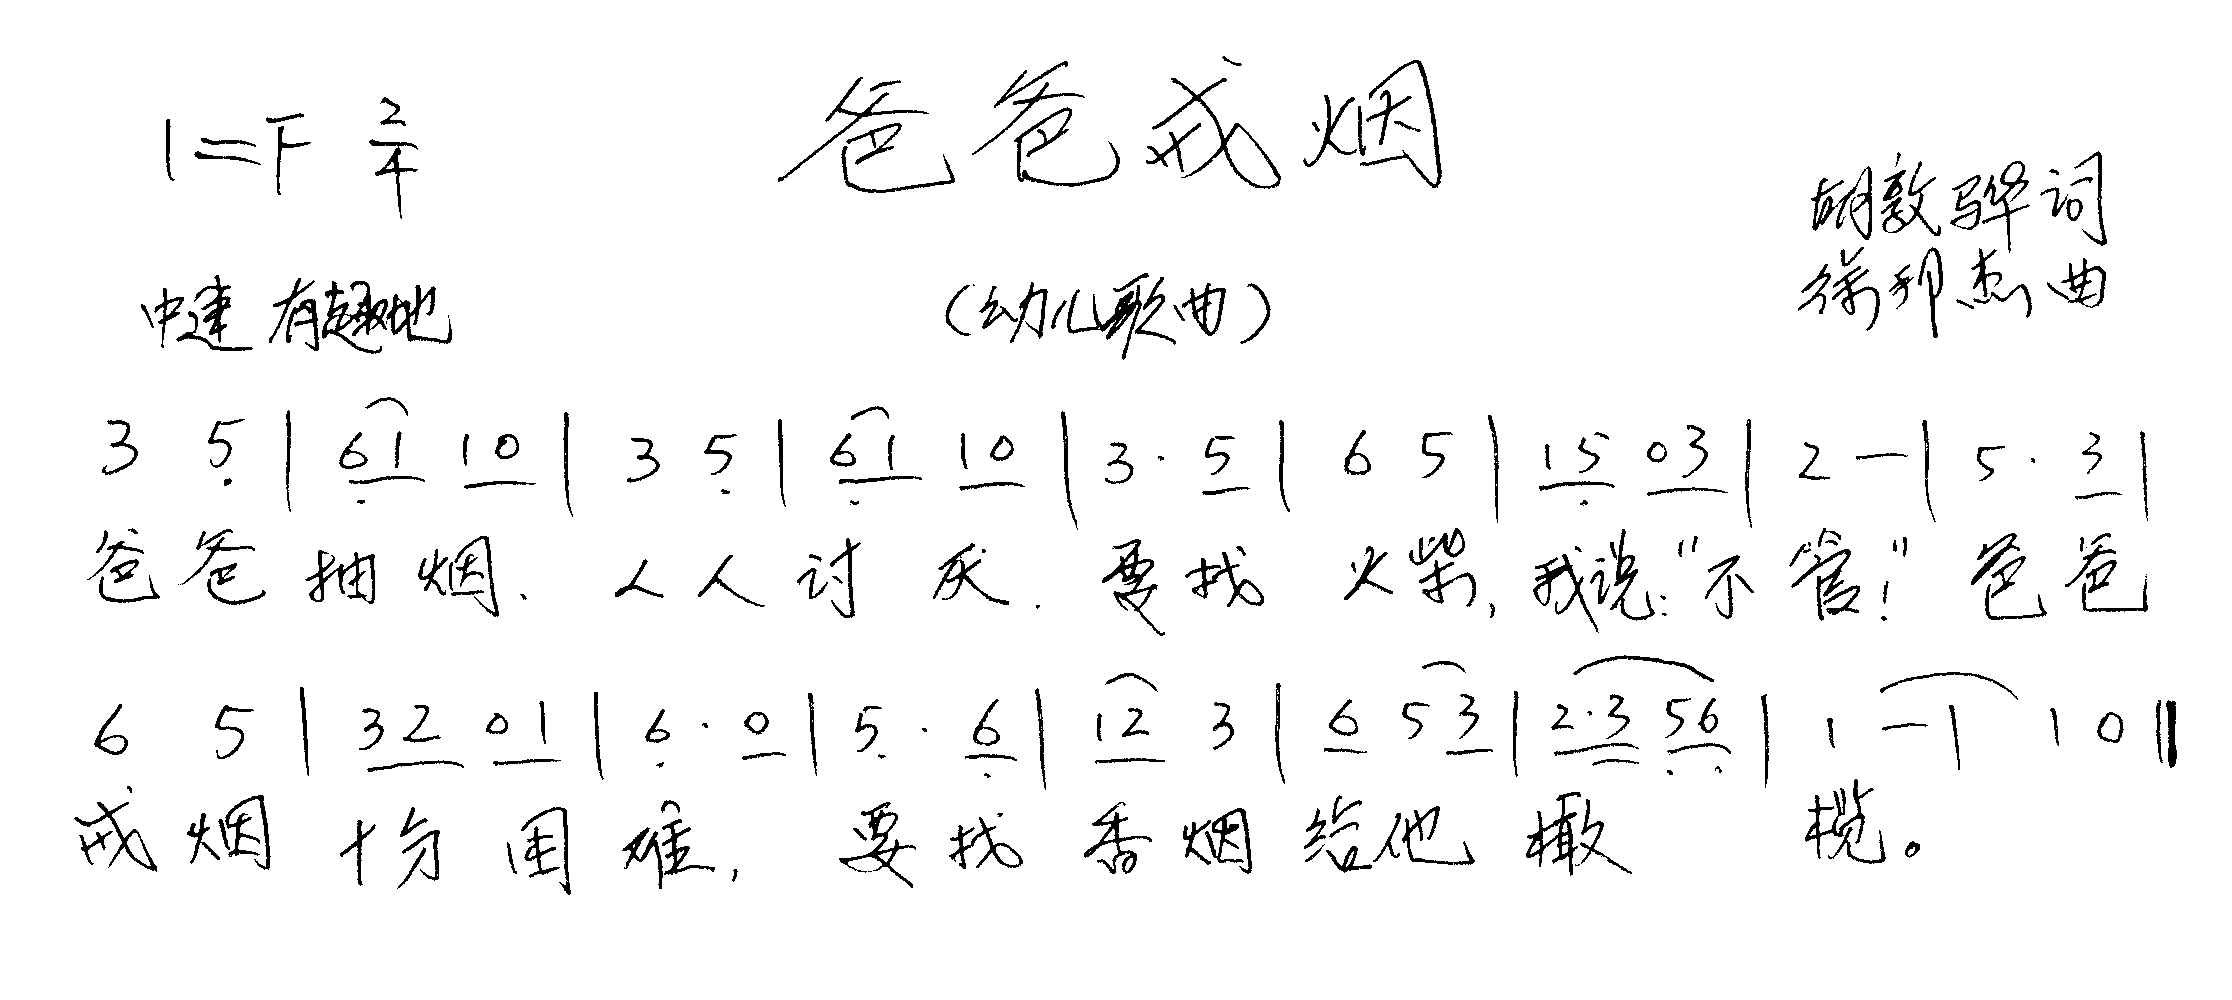 爸爸戒烟
1=F 2/4
胡敦骅词
徐邦杰曲
中速 有趣地
（幼儿歌曲）
3 5 | 61 10 | 3 5 | 61 10 | 3· 5 | 6 5 | 15 03 | 2 — | 5· 3 |
爸爸抽烟、人人讨厌.要找火柴,我说:"不管!"爸爸
6 5 | 32 01 | 6· 0 | 5· 6 | 12 3 | 6 53 | 2·3 56 | 1 — | 1 0 ‖
戒烟十分困难,要找香烟给他橄榄。